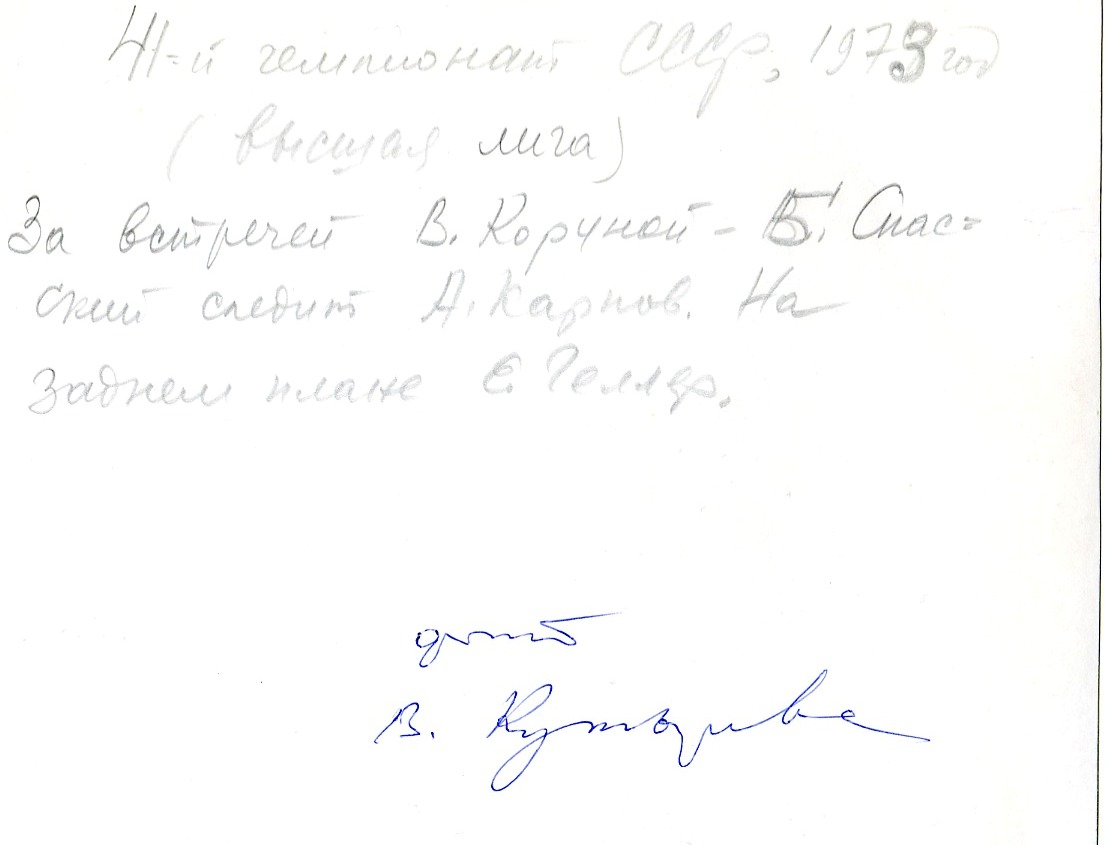 41-й чемпионат СССР, 1973 год
(высшая лига)
За встречей В. Корчной - Б. Спас=
ский следит А. Карпов. На
заднем плане Е. Геллер.
фото
В. Кутырева